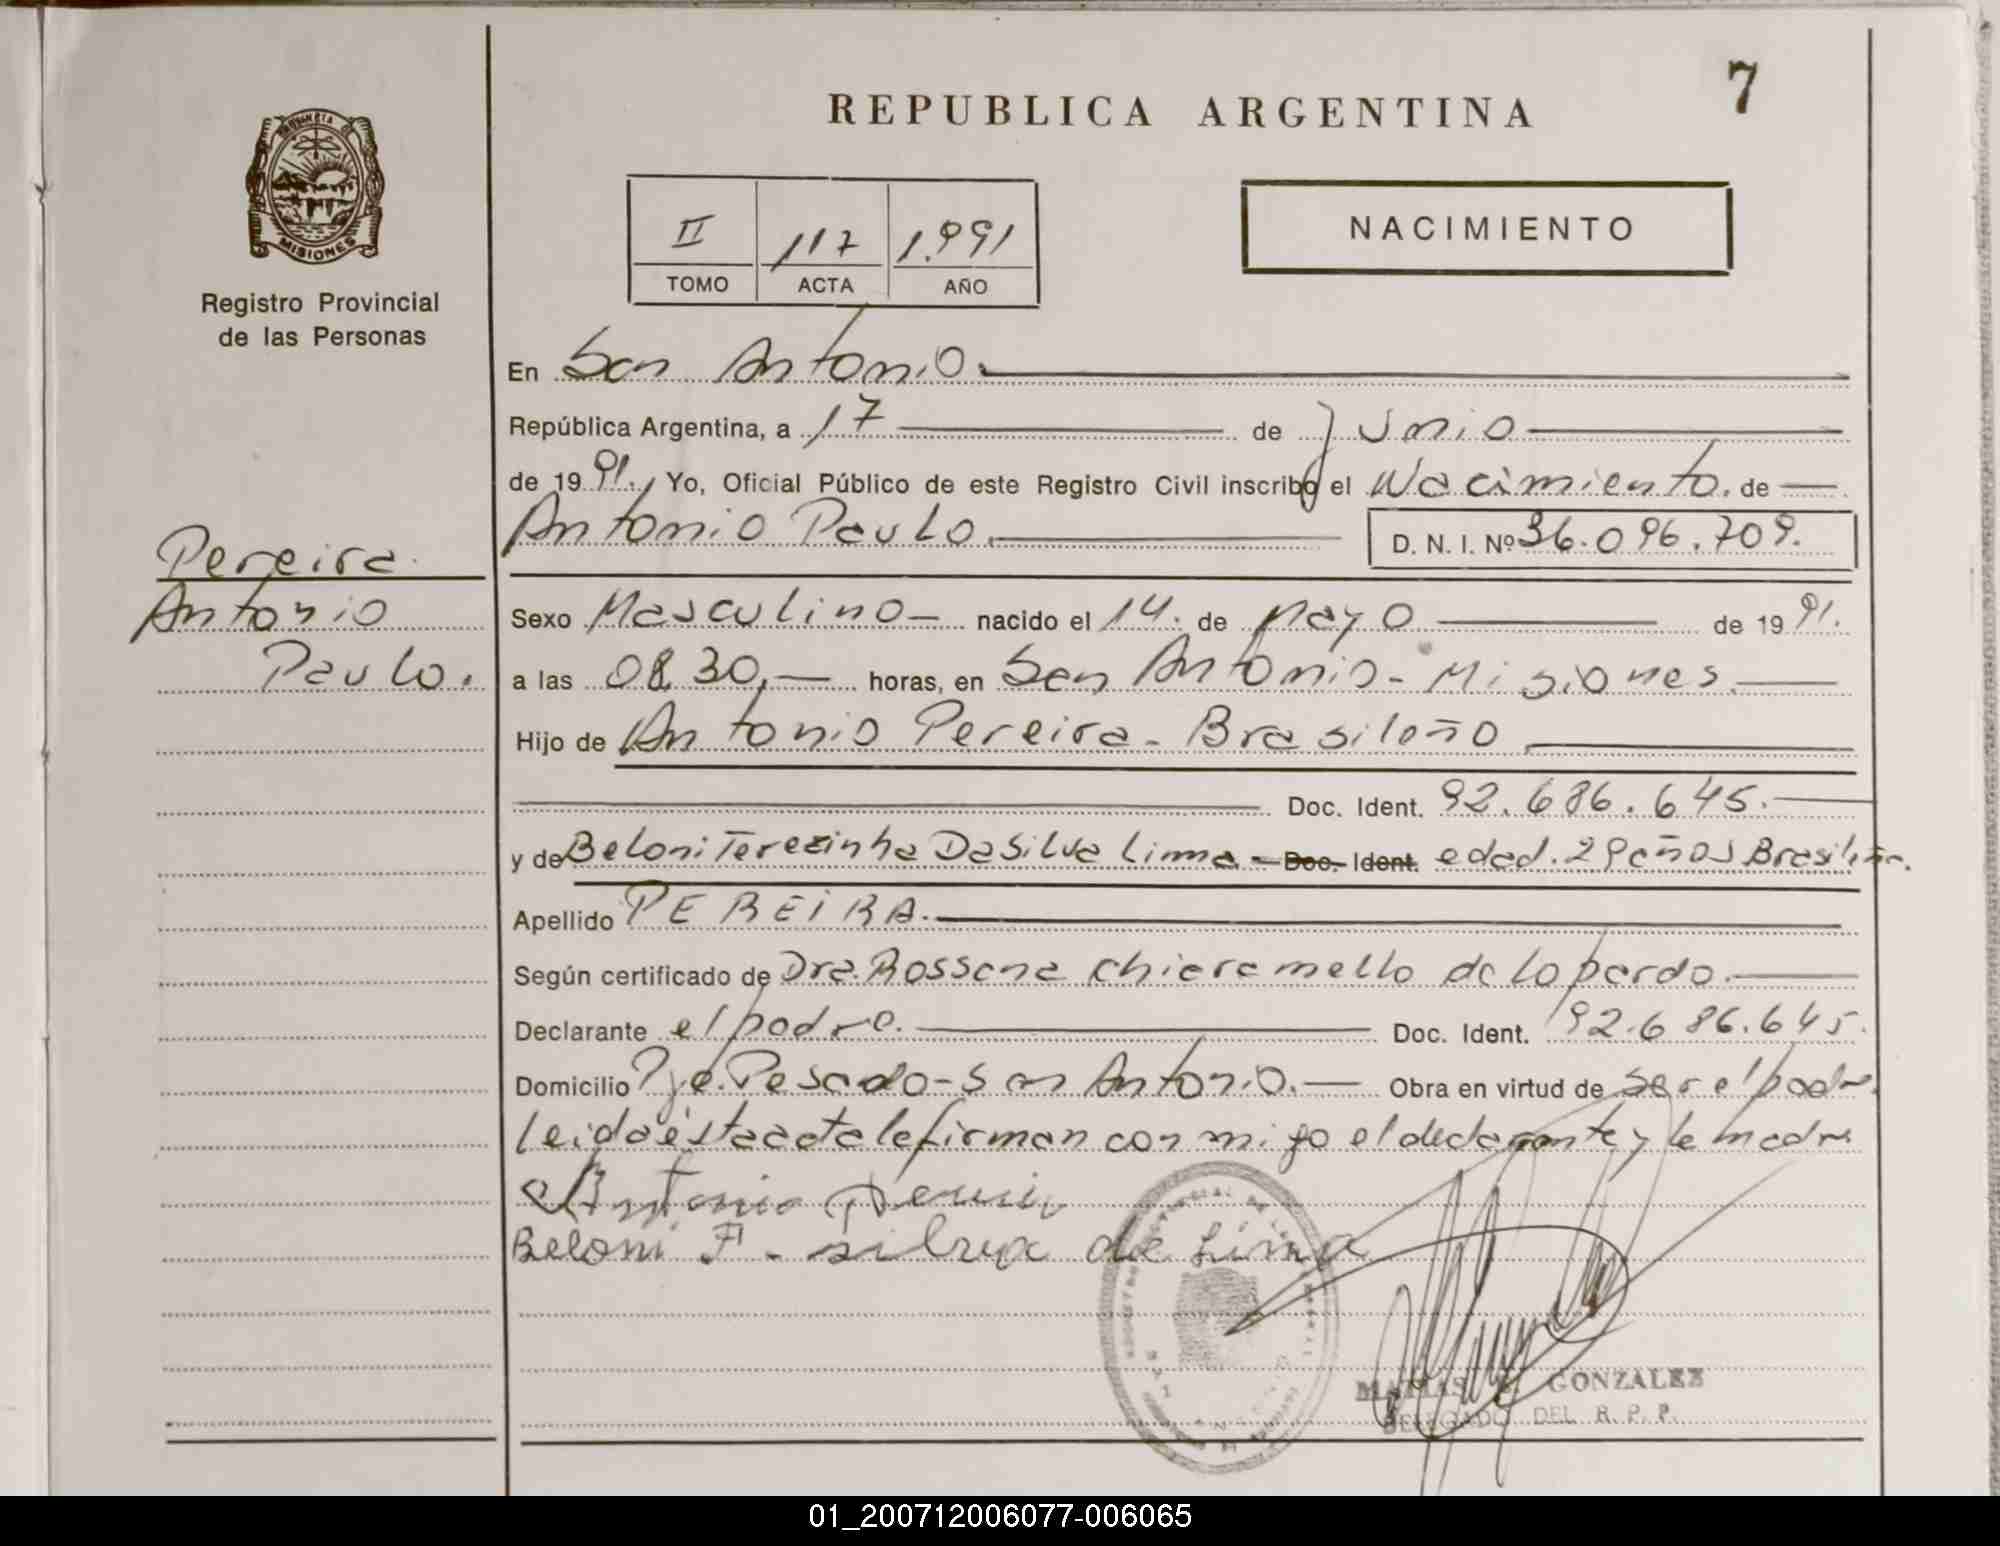 7
REPUBLICA ARGENTINA
PROVINCIA DE
MISIONES
Registro Provincial
de las Personas
II 117 1.991
TOMO ACTA AÑO
NACIMIENTO
En San Antonio.
República Argentina, a 17 de Junio
de 19 91. Yo, Oficial Público de este Registro Civil inscribo el Nacimiento. de
Antonio Paulo. D. N. I. Nº 36.096.709.
Pereira.
Antonio
Paulo.
Sexo Masculino nacido el 14. de Mayo de 19 91.
a las 08,30, horas, en San Antonio - Misiones.
Hijo de Antonio Pereira - Brasileño
Doc. Ident. 92.686.645.
y de Beloni Terezinha Da Silva Lima - Doc. Ident. edad. 29 años Brasileña.
Apellido PEREIRA.
Según certificado de Dra. Rossana Chiaramello de Lopardo.
Declarante el padre. Doc. Ident. 92.686.645.
Domicilio Pje. Pesado - San Antonio. Obra en virtud de ser el padre
leida ésta acta la firman con migo el declarante y la madre
Antonio
Beloni silva de Lima
MATIAS GONZALEZ
DELEGADO DEL R. P. P.
01_200712006077-006065